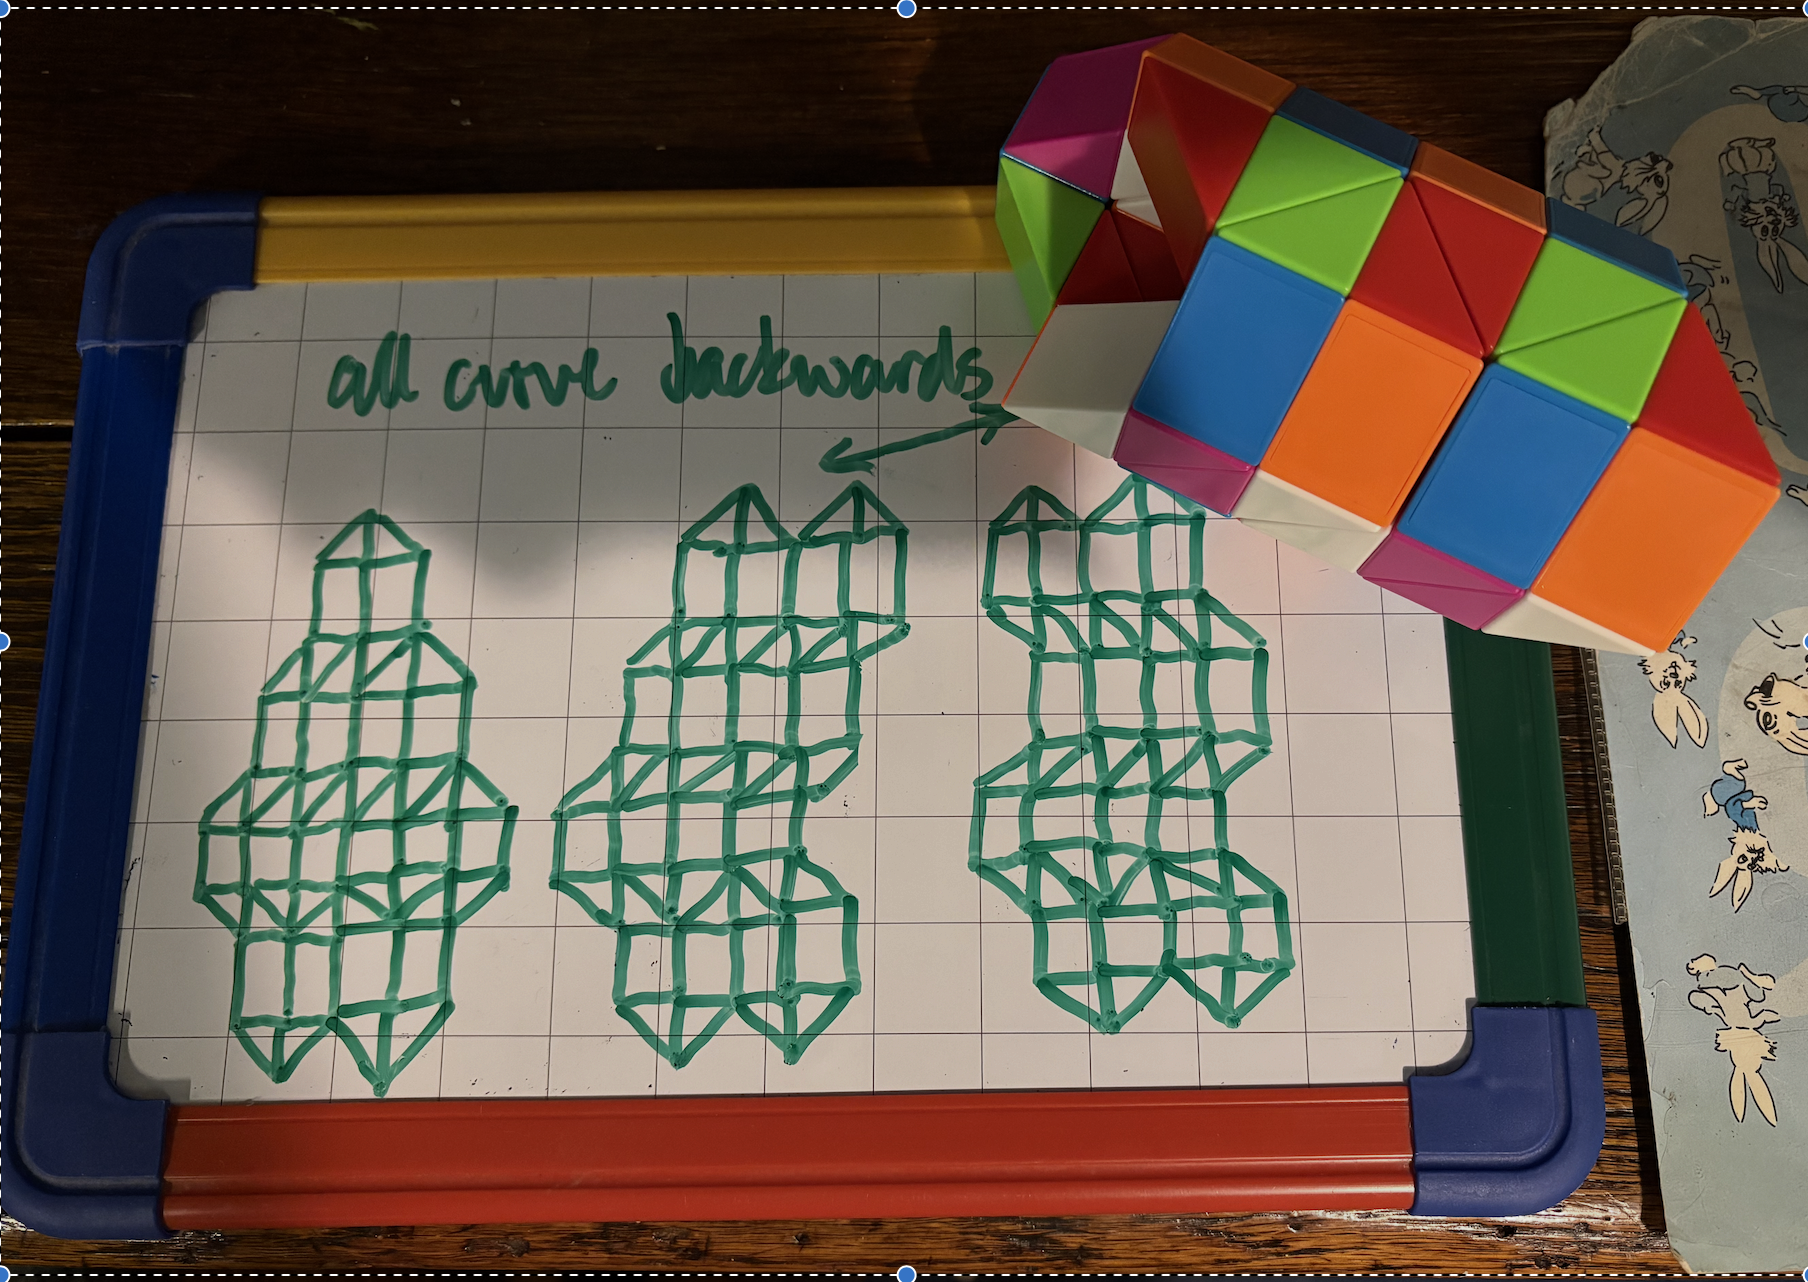 all curve backwards